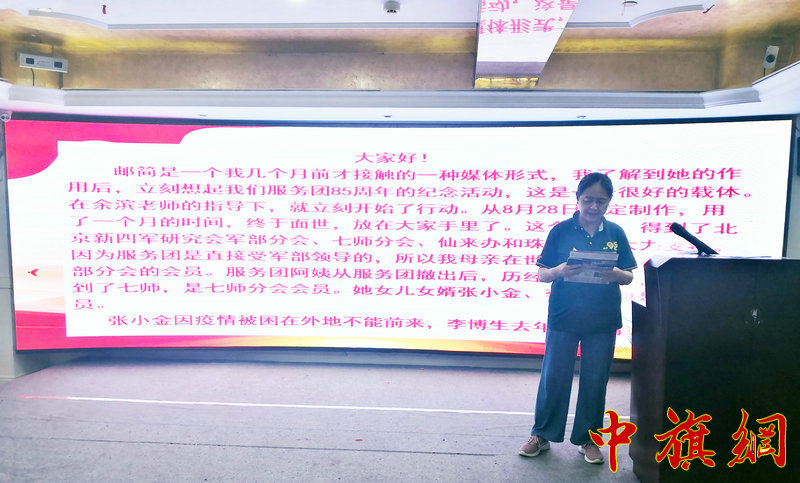 大家好！
邮简是一个我几个月前才接触的一种媒体形式，我了解到她的作
用后，立刻想起我们服务团85周年的纪念活动，这是 很好的载体。
在余滨老师的指导下，就立刻开始了行动。从8月28日 定制作，用
了一个月的时间，终于面世，放在大家手里了。这 得到了北
京新四军研究会军部分会、七师分会、仙来办和珠
因为服务团是直接受军部领导的，所以我母亲在世
部分会的会员。服务团阿姨从服务团撤出后，历经
到了七师，是七师分会会员。她女儿女婿张小金、
员。
张小金因疫情被困在外地不能前来，李博生去年
中旗網